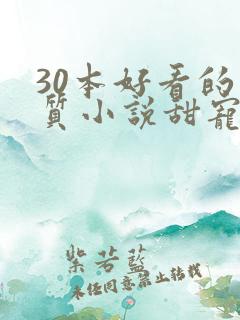 30本好看的
質小說甜寵
紫若藍
未經同意禁止轉載